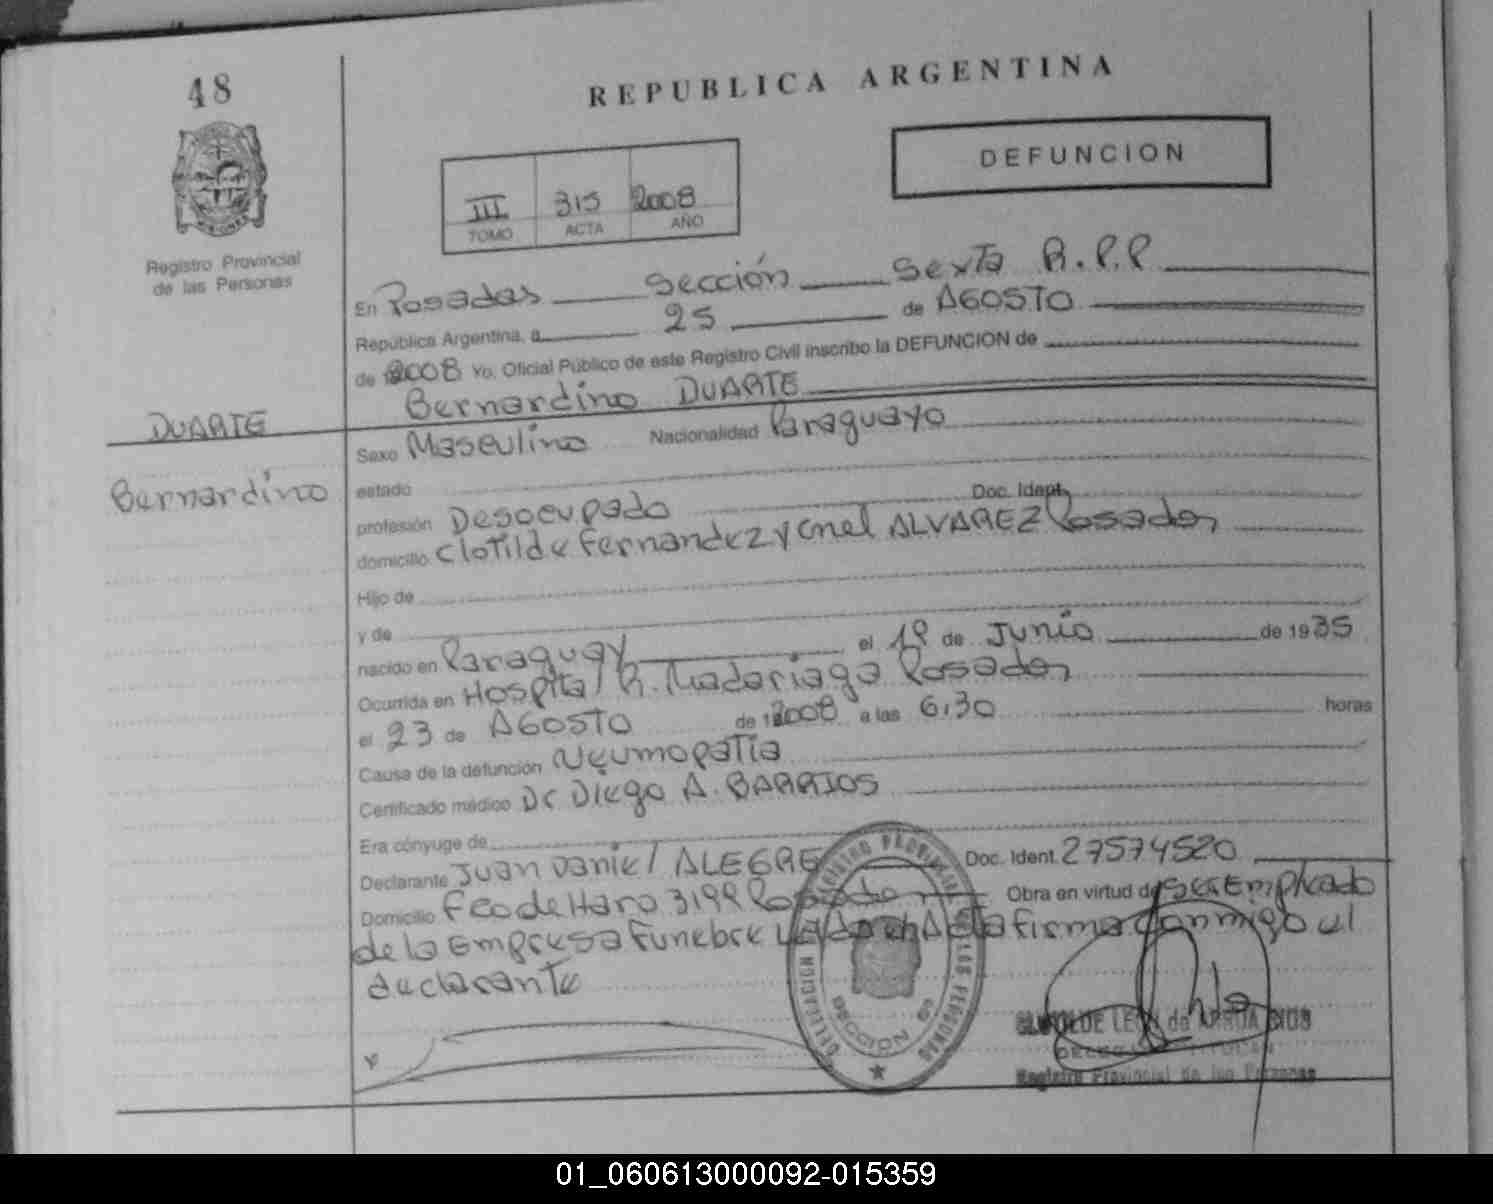 48
REPUBLICA ARGENTINA
DEFUNCION
III 315 2008
TOMO ACTA AÑO
Registro Provincial
de las Personas
En Posadas Sección Sexta R.P.P
República Argentina, a 25 de AGOSTO
de 2008 Yo, Oficial Público de este Registro Civil inscribo la DEFUNCION de
Bernardino DUARTE
DUARTE
Bernardino
Sexo Masculino Nacionalidad Paraguayo
estado
profesión Desocupado Doc. Ident.
domicilio Clotilde Fernandez y Cnel ALVAREZ Posadas
Hijo de
y de
nacido en Paraguay el 1º de Junio de 1935
Ocurrida en Hospital R. Madariaga Posadas
el 23 de AGOSTO de 2008 a las 6:30 horas
Causa de la defunción Neumopatia
Certificado médico Dr Diego A. BARRIOS
Era cónyuge de
Declarante Juan Daniel ALEGRE Doc. Ident. 27574520
Domicilio Fco de Haro 3199 Posadas Obra en virtud de ser Empleado
de la Empresa Funebre firma conmigo el
declarante
REGISTRO PROVINCIAL DE LAS PERSONAS
DELEGACION
SECCION
Registro Provincial de las Personas
01_060613000092-015359